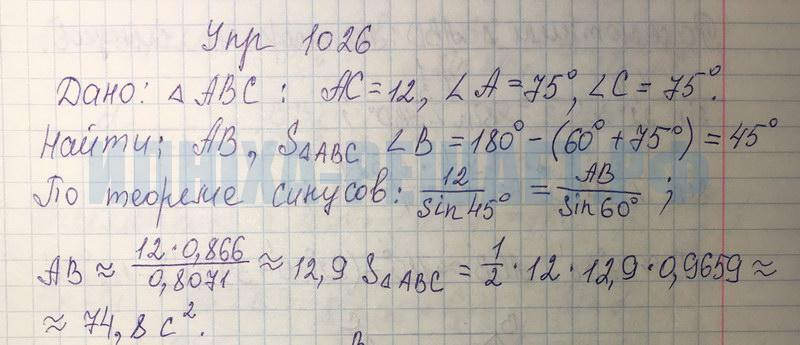 Упр 1026
Дано: △ ABC : AC = 12, ∠A = 75°, ∠C = 75°.
Найти; AB, S△ABC ∠B = 180° - (60° + 75°) = 45°
По теореме синусов: 12/sin 45° = AB/sin 60° ;
AB ≈ 12 · 0,866/0,8071 ≈ 12,9 S△ABC = 1/2 · 12 · 12,9 · 0,9659 ≈
≈ 74,8 с².